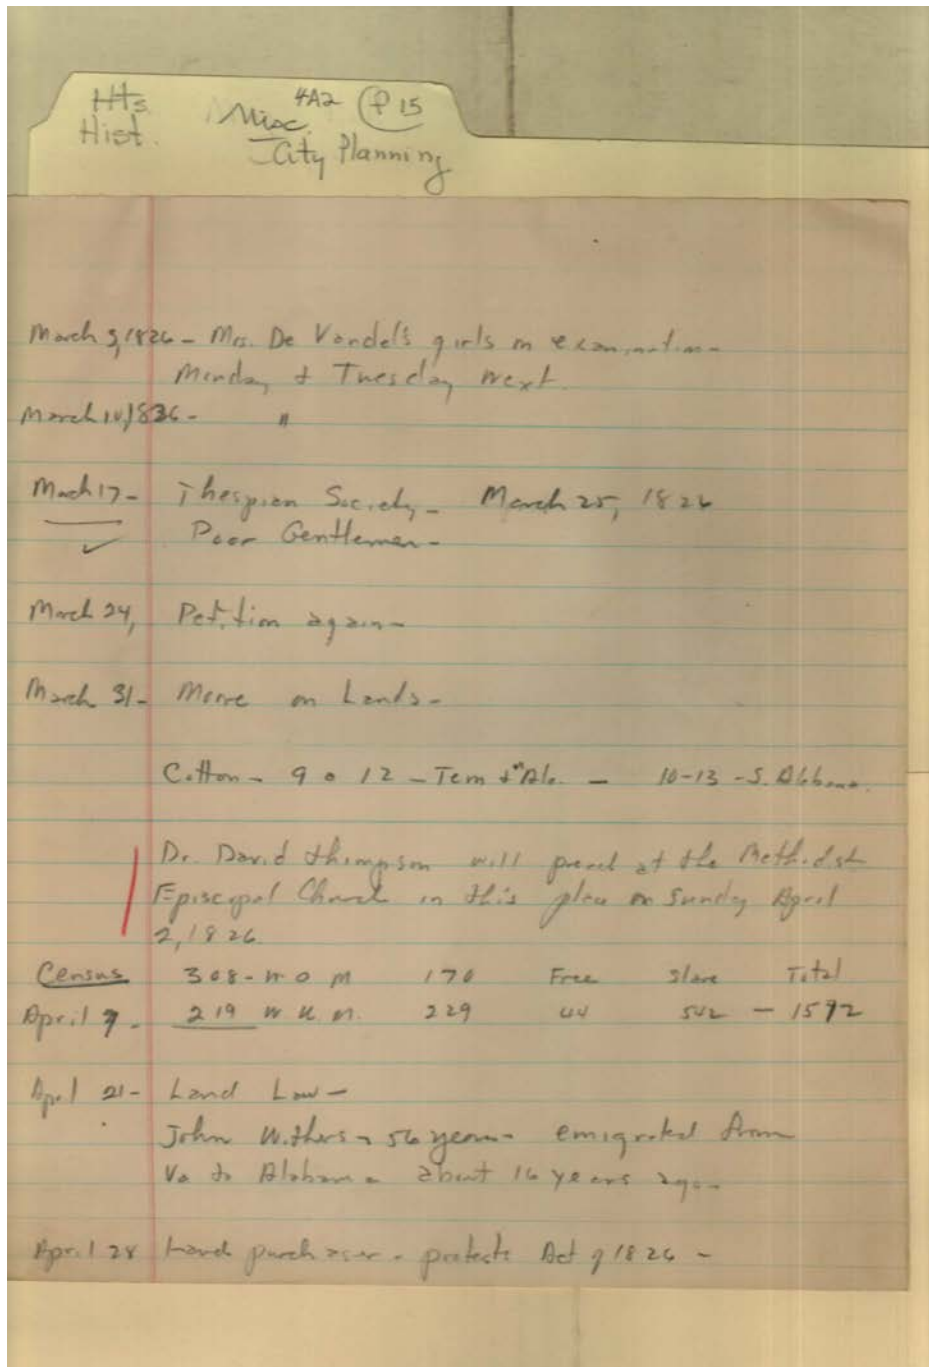 Hts. Misc. 4A2 P 15
Hist. City Planning
March 3, 1826 - Mrs. De Vandel's girls on examination -
Monday & Tuesday next.
March 10, 1826 - "
March 17 - Thespian Society - March 25, 1826
Poor Gentleman -
March 24, Petition again -
March 31 - More on Lands -
Cotton - 9 @ 12 - Tenn & N Ala. - 10-13 - S. Alabama.
Dr. David Thompson will preach at the Methodist
Episcopal Church in this place on Sunday April
2, 1826.
Census 308 - W O M 170 Free Slave Total
April 7 - 219 W U M. 229 44 542 - 1592
April 21 - Land Law -
John Withers - 56 years - emigrated from
Va to Alabama about 16 years ago -
April 28 Land purchaser - protests Act of 1826 -